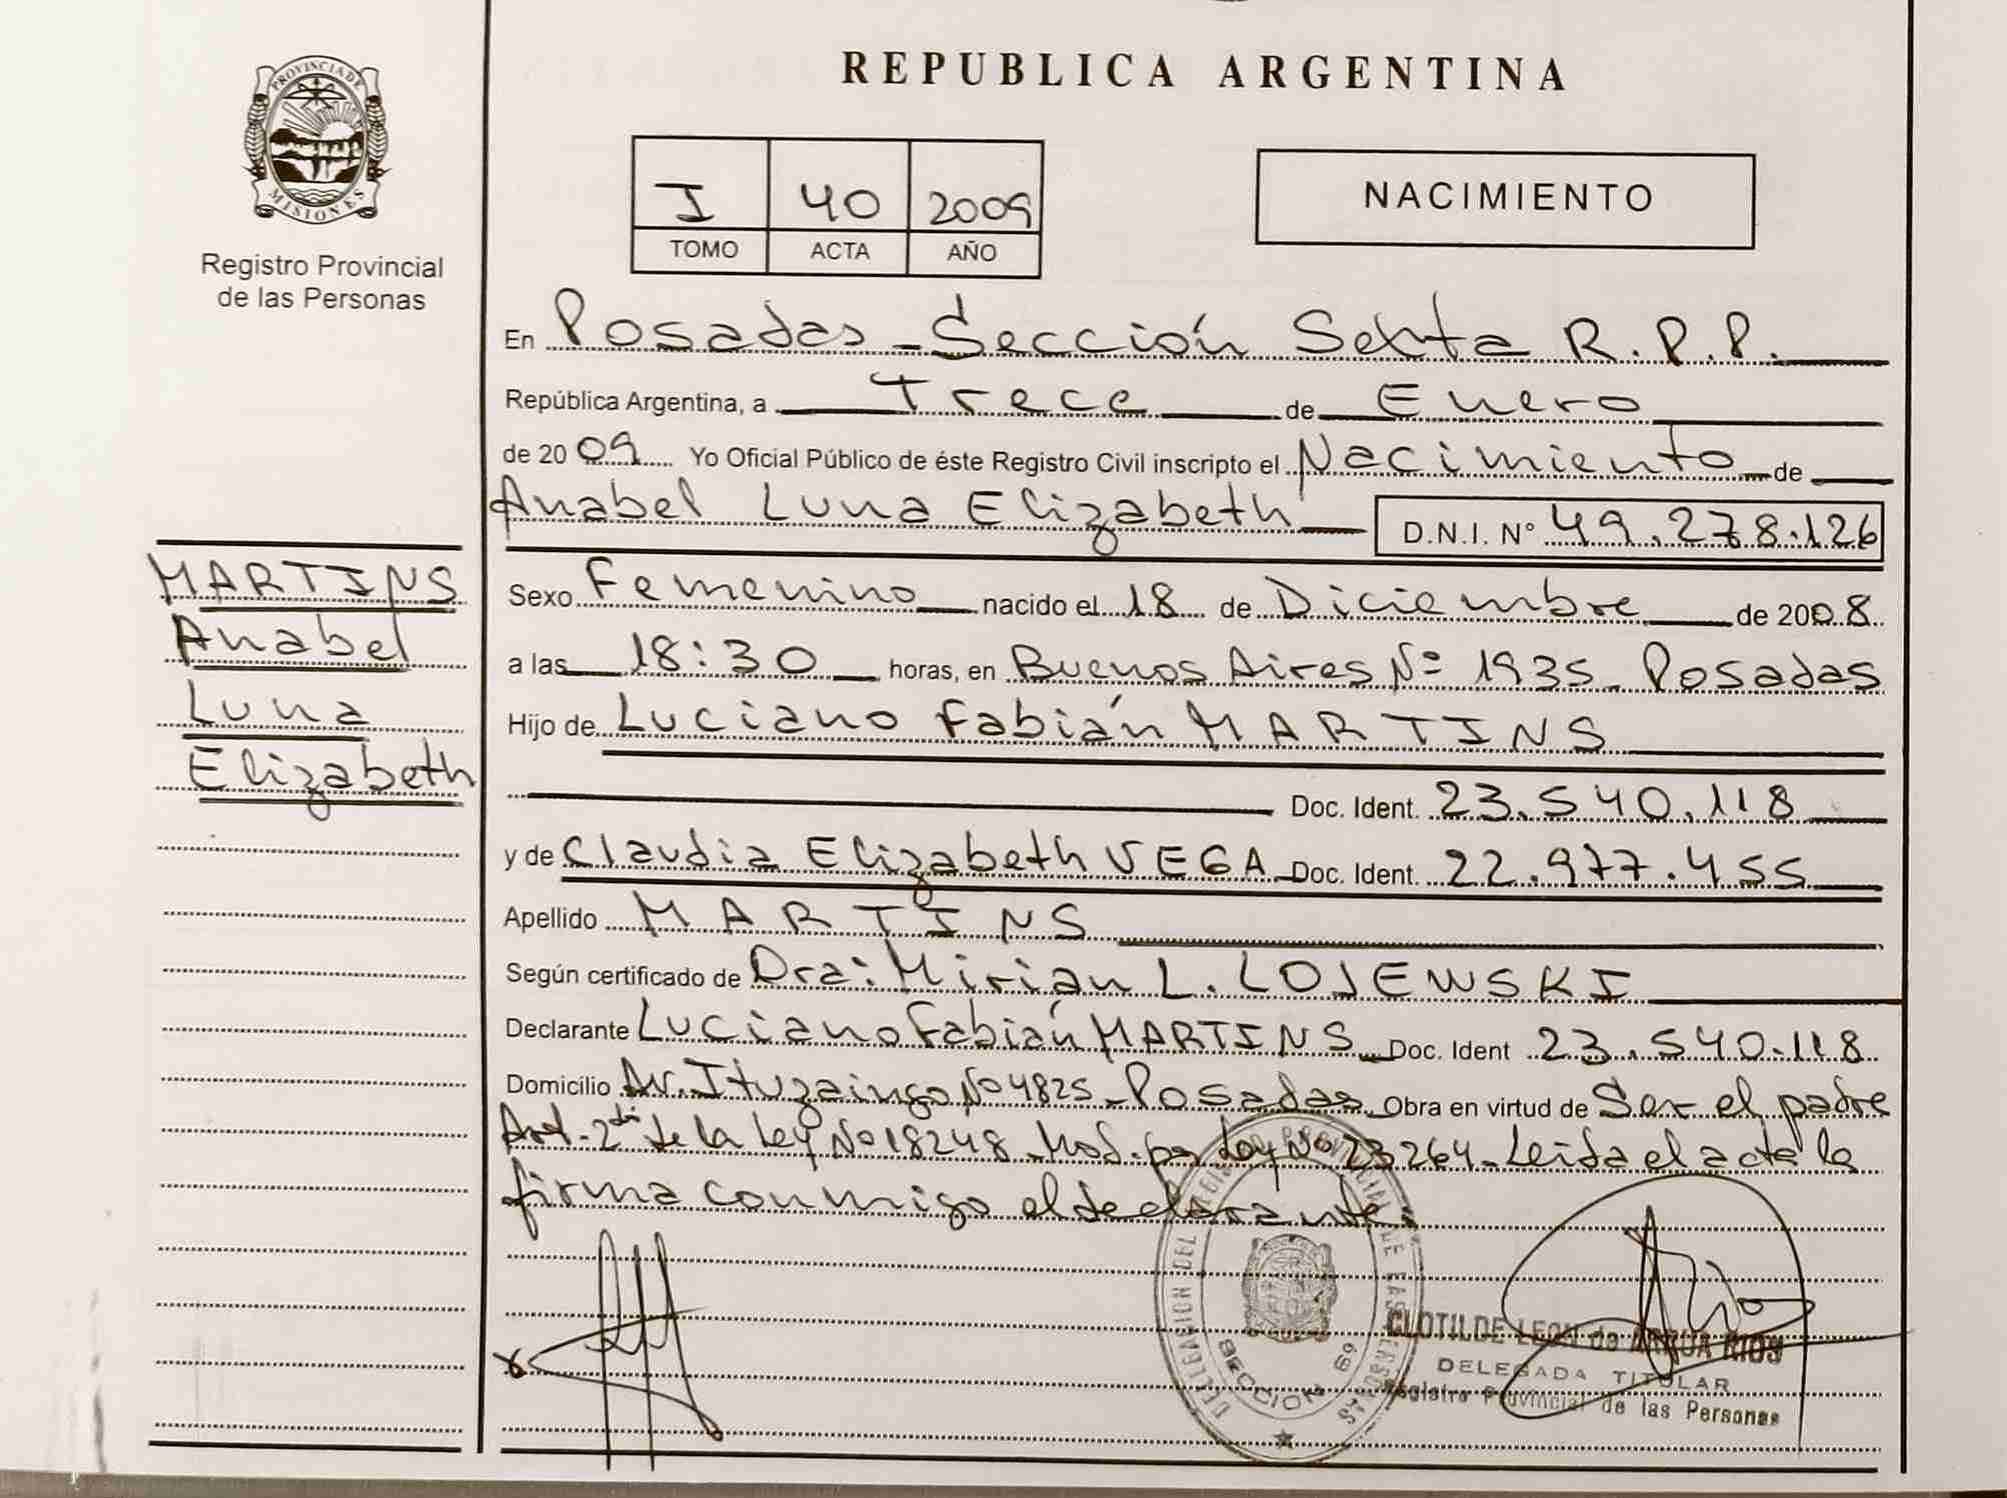 REPUBLICA ARGENTINA
PROVINCIA DE
MISIONES
Registro Provincial
de las Personas
I 40 2009
TOMO ACTA AÑO
NACIMIENTO
En Posadas - Sección Sexta R.P.P.
República Argentina, a Trece de Enero
de 2009 Yo Oficial Público de éste Registro Civil inscripto el Nacimiento de
Anabel Luna Elizabeth D.N.I. Nº 49.278.126
MARTINS
Anabel
Luna
Elizabeth
Sexo Femenino nacido el 18 de Diciembre de 2008
a las 18:30 horas, en Buenos Aires Nº 1935 - Posadas
Hijo de Luciano Fabián MARTINS
Doc. Ident. 23.540.118
y de Claudia Elizabeth VEGA Doc. Ident. 22.977.455
Apellido MARTINS
Según certificado de Dra: Mirian L. LOJEWSKI
Declarante Luciano Fabián MARTINS Doc. Ident 23.540.118
Domicilio Av. Ituzaingo Nº 4825 - Posadas Obra en virtud de Ser el padre
Art. 2do de la Ley Nº 18248 - Mod. por Ley Nº 23264 - Leida el acta la
firma conmigo el declarante.
DELEGACION DEL REGISTRO PROVINCIAL DE LAS PERSONAS
SECCION 6ª
CLOTILDE LEON de ARRUA RIOS
DELEGADA TITULAR
Registro Provincial de las Personas